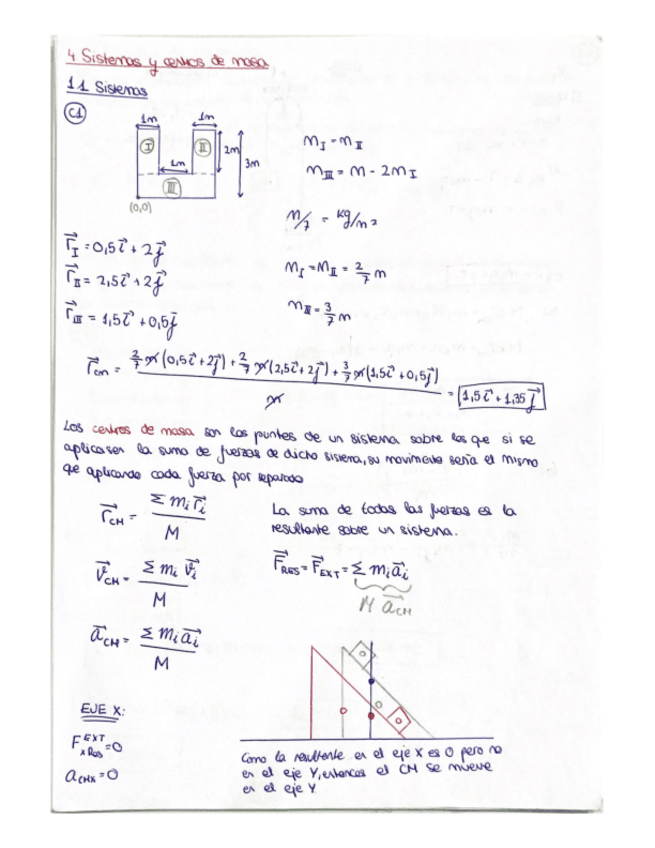 4 Sistemas y centros de masa
1.1 Sistemas
C1
1m 1m
I II 2m 3m
1m
III
(0,0)
m_I = m_II
m_III = m - 2m_I
m/7 = kg/m²
r⃗_I = 0,5i⃗ + 2j⃗
r⃗_II = 2,5i⃗ + 2j⃗
r⃗_III = 1,5i⃗ + 0,5j⃗
m_I = m_II = 2/7 m
m_III = 3/7 m
r⃗_cm = (2/7 m(0,5i⃗ + 2j⃗) + 2/7 m(2,5i⃗ + 2j⃗) + 3/7 m(1,5i⃗ + 0,5j⃗)) / m = 1,5i⃗ + 1,35j⃗
Los centros de masa son los puntos de un sistema sobre los que si se
aplicasen la suma de fuerzas de dicho sistema, su movimiento sería el mismo
qe aplicando cada fuerza por separado
r⃗_CM = Σ m_i r⃗_i / M
La suma de todas las fuerzas es la
resultante sobre un sistema.
v⃗_CM = Σ m_i v⃗_i / M
F⃗_RES = F⃗_EXT = Σ m_i a⃗_i
M a⃗_CM
a⃗_CM = Σ m_i a⃗_i / M
EJE X:
F_xRes^EXT = 0
a_CMX = 0
Como la resultante en el eje X es 0 pero no
en el eje Y, entonces el CM se mueve
en el eje Y